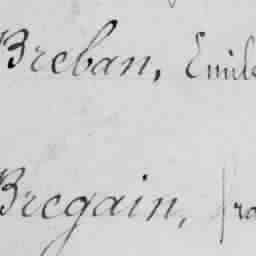 Breban, Emile
Bregain, fra